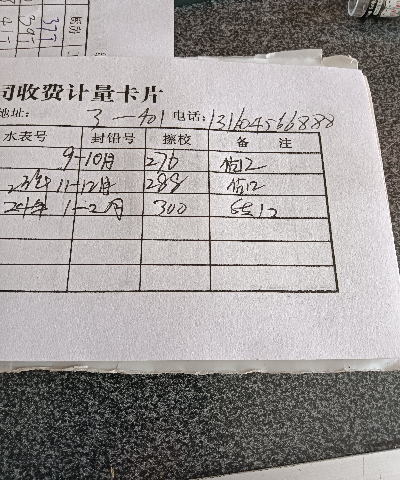 司收费计量卡片
地址: 3-401 电话: 13604566888
水表号 封铅号 擦校 备 注
9-10月 276 估12
23年 11-12月 288 估12
24年 1-2月 300 估12